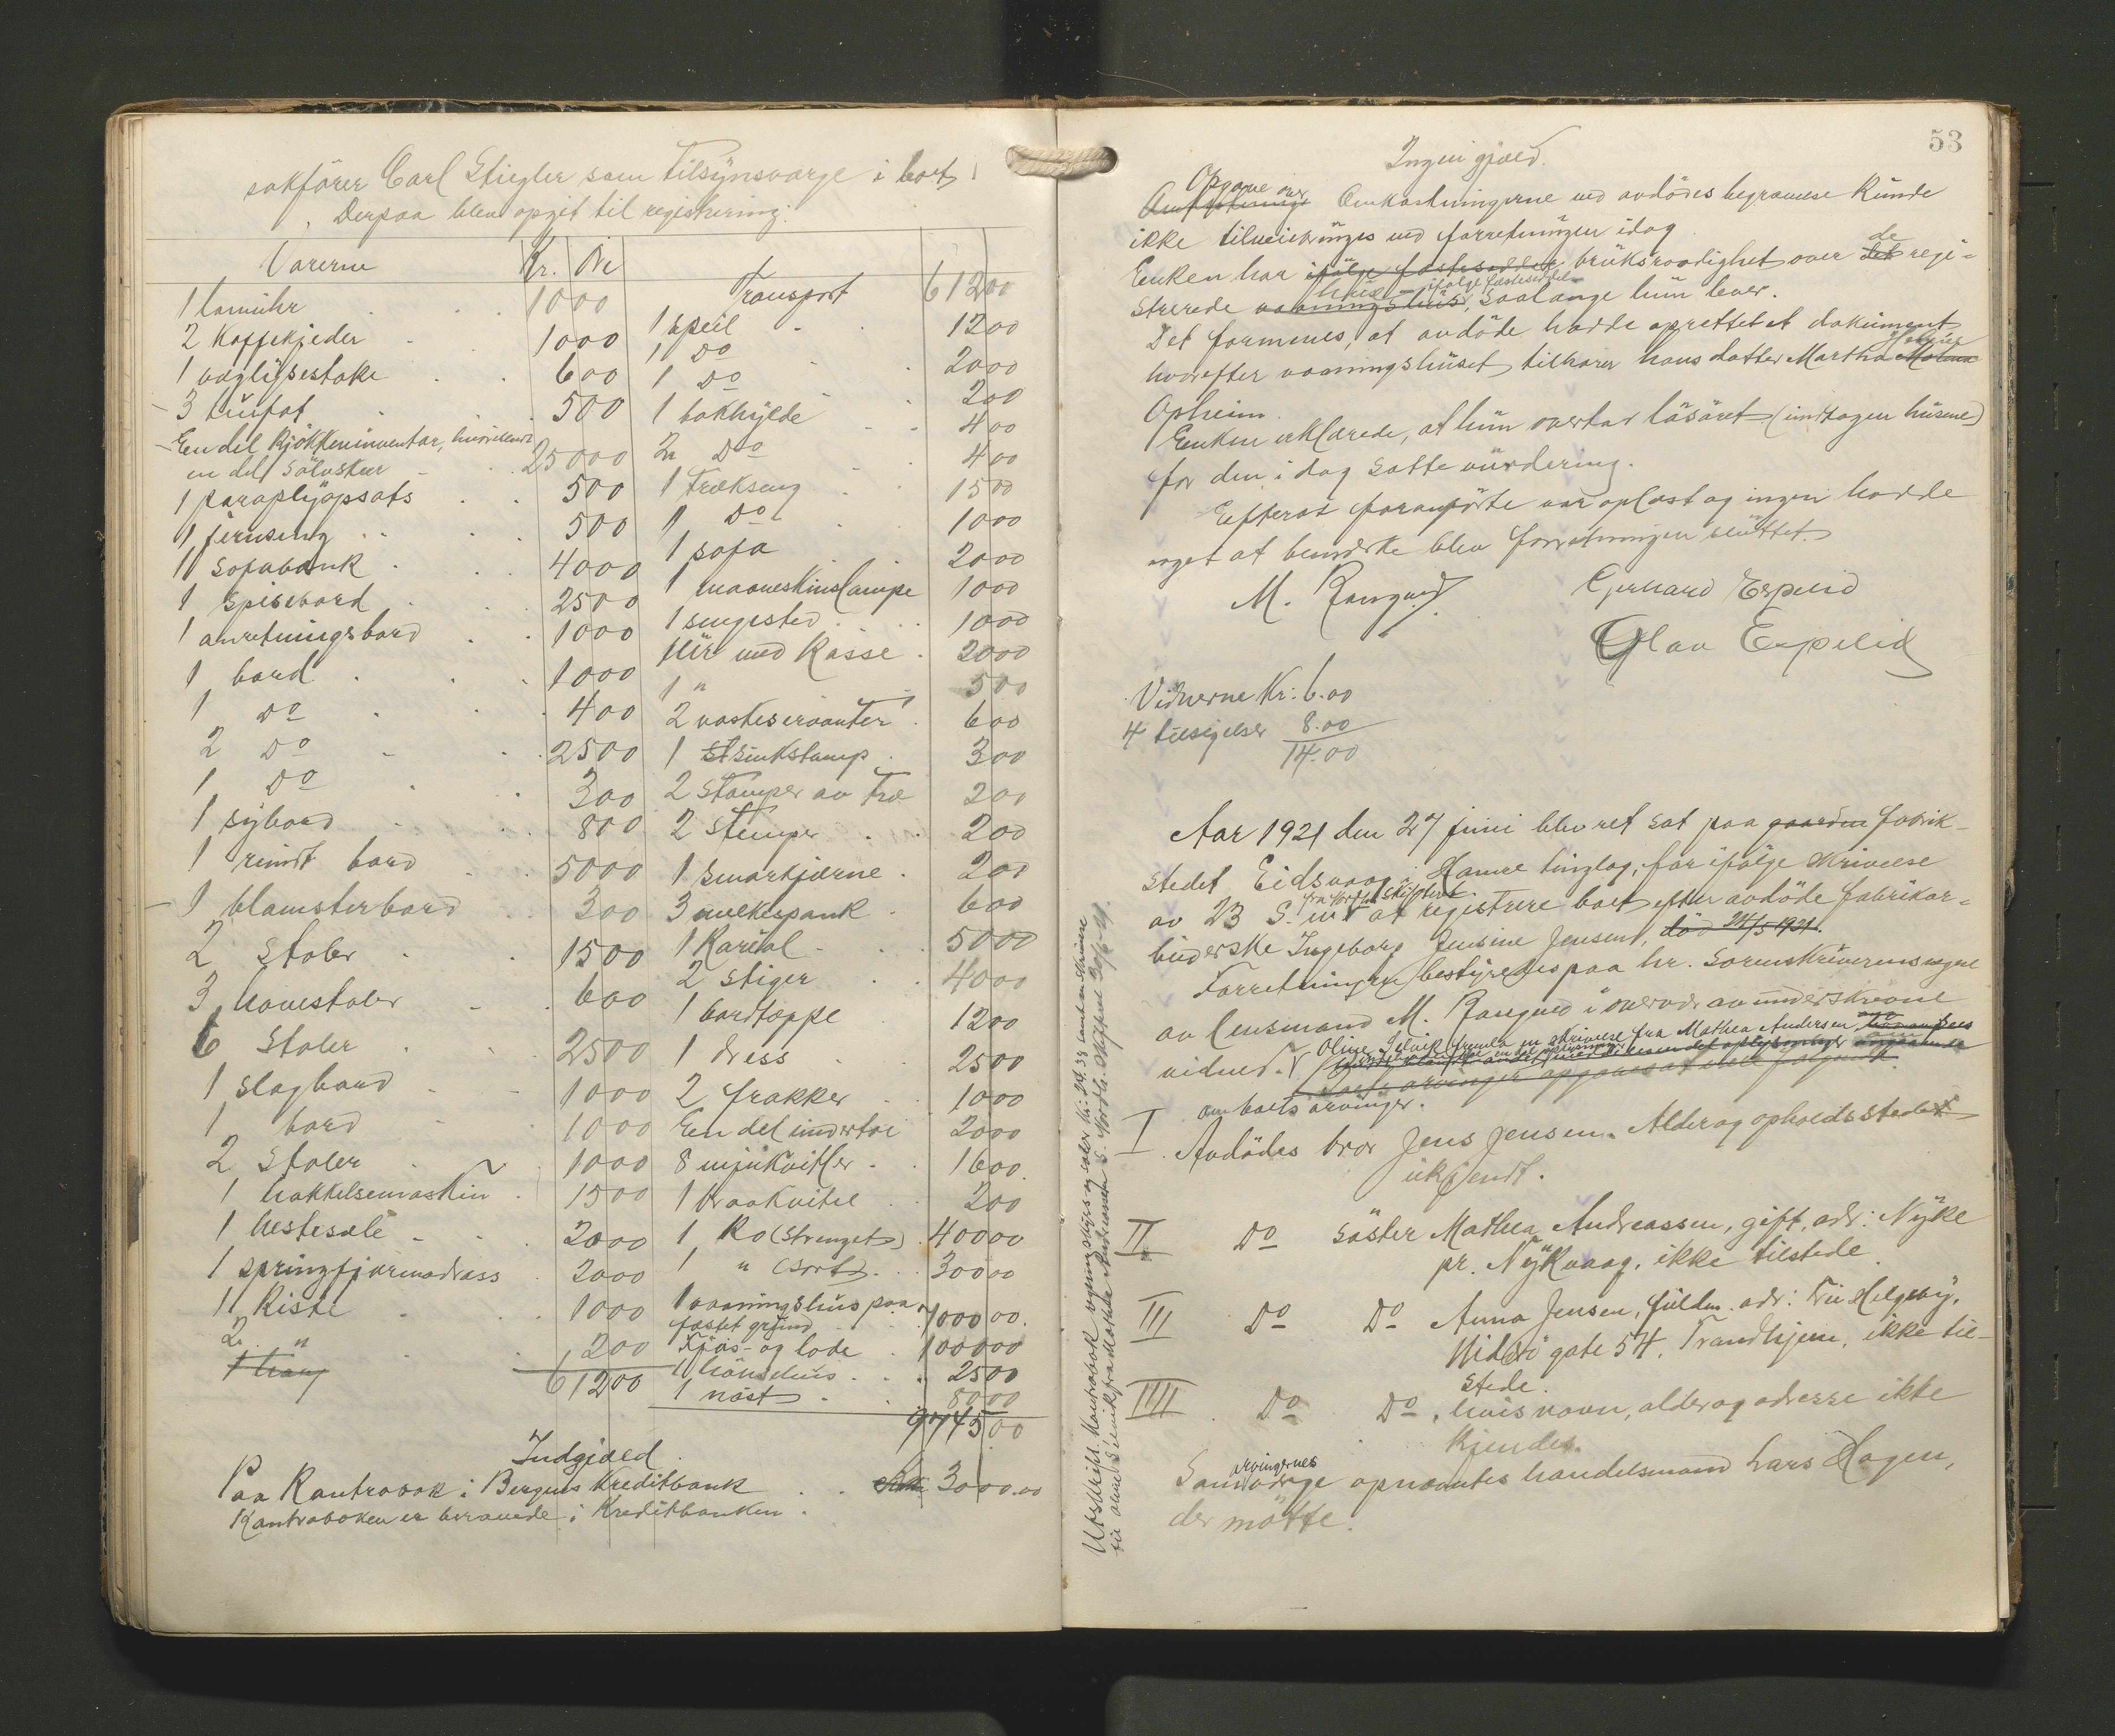 sakförer Carl Stiegler som tilsynsværge i boet.
Derpaa blev opgit til registrering:
Varerne Kr. Øre
1 taarnuhr 10 00
2 Kaffekjeder 10 00
1 væglysestake 6 00
3 tinfat 5 00
En del Kjökkeninventar,
en del sölvskeer 250 00
1 paraplyopsats 5 00
1 jernseng 5 00
1 Sofabænk 40 00
1 Spisebord 25 00
1 anretningsbord 10 00
1 bord 10 00
1 do 4 00
2 do 25 00
1 do 3 00
1 sybord 8 00
1 rundt bord 50 00
1 blomsterbord 3 00
2 Stoler 15 00
3 havestoler 6 00
6 Stoler 25 00
1 slagbord 10 00
1 bord 10 00
2 Stoler 10 00
1 hakkelsemaskin 15 00
1 hestesele 20 00
1 springfjærmadrass 20 00
1 Kiste 10 00
2 " 2 00
612 00
Transport 612 00
1 speil 12 00
1 do 20 00
1 do 2 00
1 bokhylde 4 00
2 do 4 00
1 Trækseng 15 00
1 do 10 00
1 sofa 20 00
1 maaneskinslampe 10 00
1 sengested 10 00
1 Ur med Kasse 20 00
1 " 5 00
2 vaskeservanter 6 00
1 sinkstamp 3 00
2 Stamper av Træ 2 00
2 Stamper 2 00
1 smørkjærne 2 00
3 melkespank 6 00
1 Kariol 50 00
2 stiger 40 00
1 bordtæppe 12 00
1 dress 25 00
2 frakker 10 00
En del undertøi 20 00
8 mjukvitler 16 00
1 braakvitel 2 00
1 Ko (Stranget) 400 00
1 " (sort) 300 00
1 vaaningshus paa
fæstet grund 7000 00
Fjøs- og lode 1000 00
1 hönsehus 25 00
1 nöst 80 00
9745 00
Indgjæld
Paa Kontrabok i Bergens Kreditbank 3000.00
Kontraboken er beroende i Kreditbanken.
53
Ingen gjæld.
Opgave over
Omkostningerne ved avdödes begravelse kunde
ikke tilveiebringes ved forretningen idag
Enken har ifölge fæstesedler bruksraadighet over det de regi-
strerede vaaningshus, hus - ifölge fæsteseddel - saalænge hun lever.
Det formenes, at avdöde hadde oprettet et dokument
hvorefter vaaningshuset tilhører hans datter Martha
Opheim.
Enken erklærede, at hun overtar løsøret (undtagen husene)
for den i dag satte vurdering.
Efterat foranförte var oplæst og ingen hadde
noget at bemerke blev forretningen sluttet.
M. Rangnæs Gerhard Espelid
Olav Espelid
Vidnerne Kr: 6.00
4 tilsigelser 8.00
14.00
Aar 1921 den 27 juni blev ret sat paa gaarden fabrik-
stedet Eidsvaag i Hamre tinglag, for ifølge skrivelse
av 23 S. M. fra Nordhl. skifteret at registrere boet efter avdöde fabrikar-
beiderske Ingeborg Jensine Jensen, död 24/5 1921.
Forretningen bestyredes paa hr. Sorenskriverens vegne
av lensmand M. Rangnæs i overvær av underskrevne
vidner. Oline Selvik fremla en skrivelse fra Mathea Andersen
om boets arvinger.
I Avdödes bror Jens Jensen. Alder og opholdssted
ukjendt.
II Do söster Mathea Andreassen, gift, adr: Nyke
pr. Nykvaag, ikke tilstede.
III Do Do Anna Jensen, fuldm. adr: Fru Helgeby,
Nidarö gate 54, Trondhjem, ikke til-
stede.
IIII Do Do, hvis navn, alder og adresse ikke
kjendes.
Som arvingernes værge opnævntes handelsmand Lars Hagen,
der mötte.